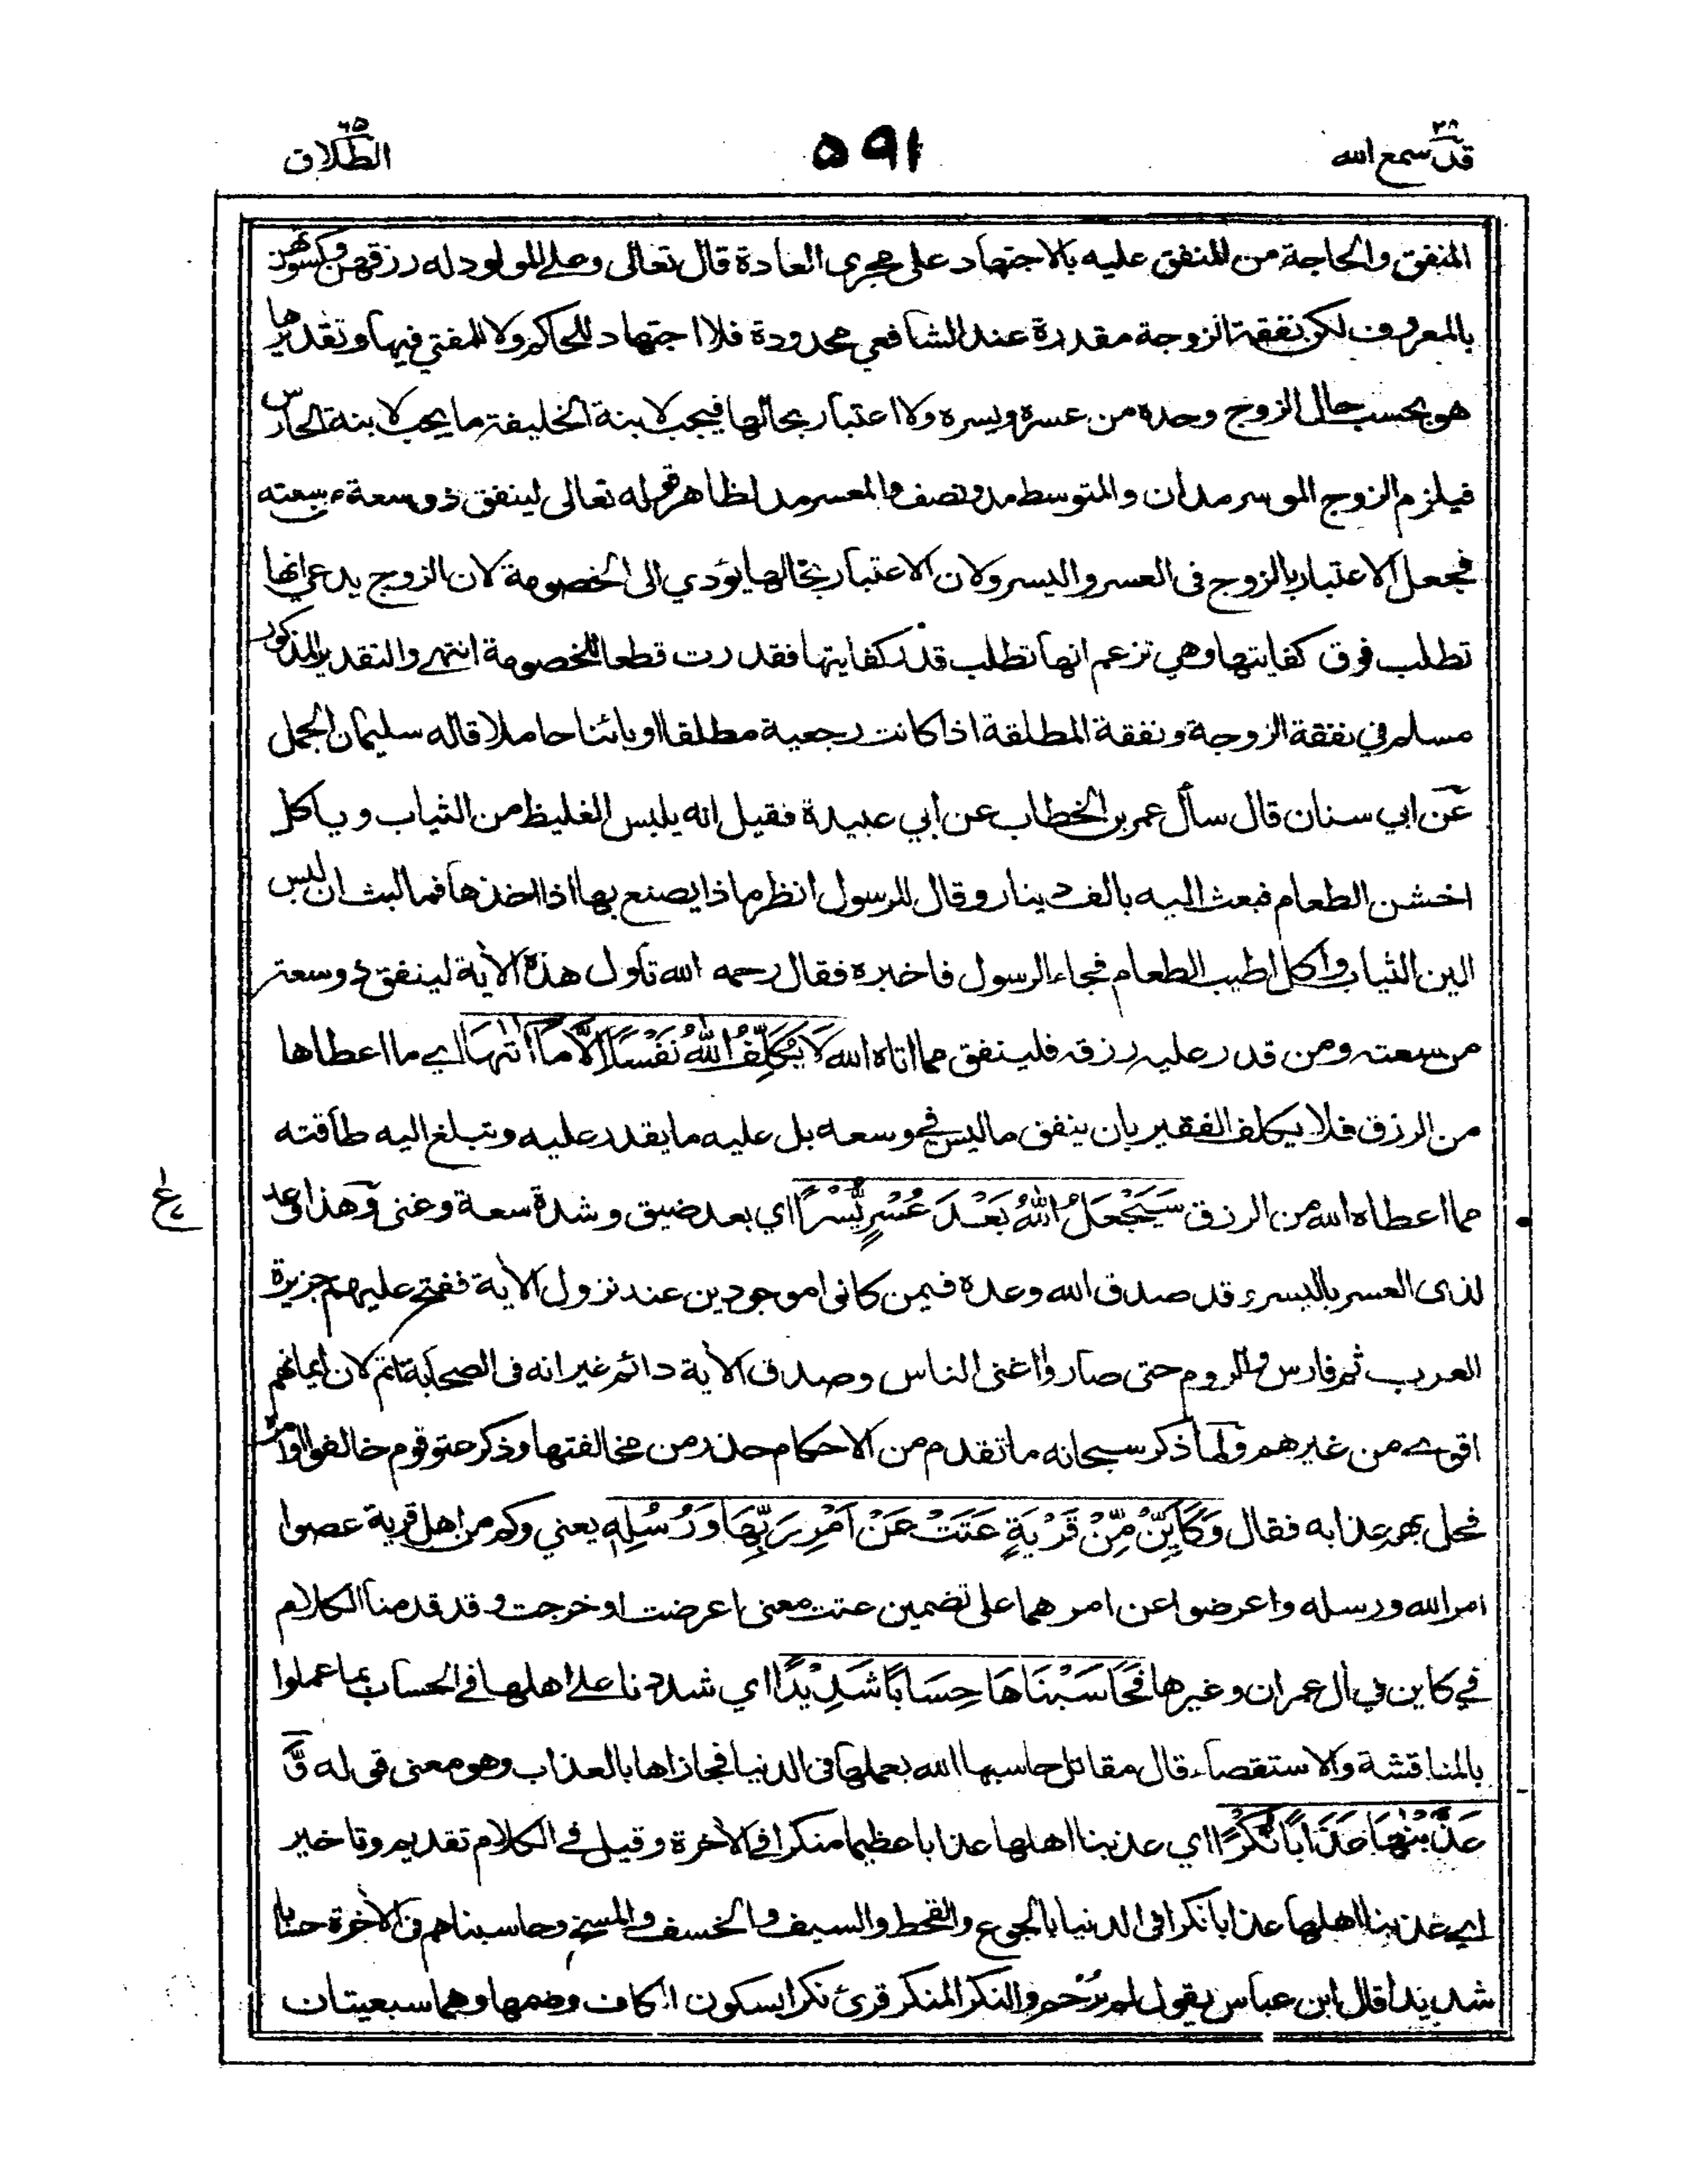 قد سمع الله ٢٨
٥٩١
الطلاق ٦٥
المنفق والحاجة من المنفق عليه بالاجتهاد على مجرى العادة قال تعالى وعلى المولود له رزقهن وكسوتهن
بالمعروف لكن نفقة الزوجة مقدرة عند الشافعي محدودة فلا اجتهاد للحاكم ولا للمفتي فيها وتقديرها
هو بحسب حال الزوج وحده من عسره ويسره ولا اعتبار بحالها فيجب لابنة الخليفة ما يجب لابنة الحارس
فيلزم الزوج الموسر مدان والمتوسط مد ونصف والمعسر مد لظاهر قوله تعالى لينفق ذو سعة من سعته
فجعل الاعتبار بالزوج في العسر واليسر ولان الاعتبار بحالها يؤدي الى الخصومة لان الزوج يدعي انها
تطلب فوق كفايتها وهي تزعم انها تطلب قدر كفايتها فقدرت قطعا للخصومة انتهى والتقدير المذكور
مسلم في نفقة الزوجة ونفقة المطلقة اذا كانت رجعية مطلقا او بائنا حاملا قاله سليمان الجمل
عن ابي سنان قال سأل عمر بن الخطاب عن ابي عبيدة فقيل انه يلبس الغليظ من الثياب وياكل
اخشن الطعام فبعث اليه بالف دينار وقال للرسول انظر ماذا يصنع بها اذا اخذها فما لبث ان لبس
الين الثياب واكل اطيب الطعام فجاء الرسول فاخبره فقال رحمه الله تأول هذه الآية لينفق ذو سعة
من سعته ومن قدر عليه رزقه فلينفق مما اتاه الله لَا يُكَلِّفُ اللّٰهُ نَفْسًا اِلَّا مَا اٰتٰىهَا اي ما اعطاها
من الرزق فلا يكلف الفقير بان ينفق ما ليس في وسعه بل عليه ما يقدر عليه وتبلغ اليه طاقته
مما اعطاه الله من الرزق سَيَجْعَلُ اللّٰهُ بَعْدَ عُسْرٍ يُّسْرًا اي بعد ضيق وشدة سعة وغنى وهذا وعد
ع
لذى العسر باليسر وقد صدق الله وعده فيمن كانوا موجودين عند نزول الآية ففتح عليهم جزيرة
العرب ثم فارس والروم حتى صاروا اغنى الناس وصدق الآية دائم غير انه فى الصحابة اتم لان ايمانهم
اقوى من غيرهم ولما ذكر سبحانه ما تقدم من الاحكام حذر من مخالفتها وذكر عتو قوم خالفوا اوامره
فحل بهم عذابه فقال وَكَاَيِّنْ مِّنْ قَرْيَةٍ عَتَتْ عَنْ اَمْرِ رَبِّهَا وَرُسُلِهِ يعني وكم من اهل قرية عصوا
امر الله ورسله واعرضوا عن امرهما على تضمين عتت معنى اعرضت او خرجت وقد قدمنا الكلام
في كاين في آل عمران وغيرها فَحَاسَبْنَاهَا حِسَابًا شَدِيْدًا اي شددنا على اهلها في الحساب بما عملوا
بالمناقشة والاستقصاء قال مقاتل حاسبها الله بعملها فى الدنيا فجازاها بالعذاب وهو معنى قوله وَّ
عَذَّبْنٰهَا عَذَابًا نُّكْرًا اي عذبنا اهلها عذابا عظيما منكرا في الآخرة وقيل في الكلام تقديم وتاخير
اي عذبنا اهلها عذابا نكرا فى الدنيا بالجوع والقحط والسيف والخسف والمسخ وحاسبناهم فى الآخرة حسابا
شديدا قال ابن عباس يقول لم ترحم والنكر المنكر قرئ نكرا بسكون الكاف وضمها وهما سبعيتان